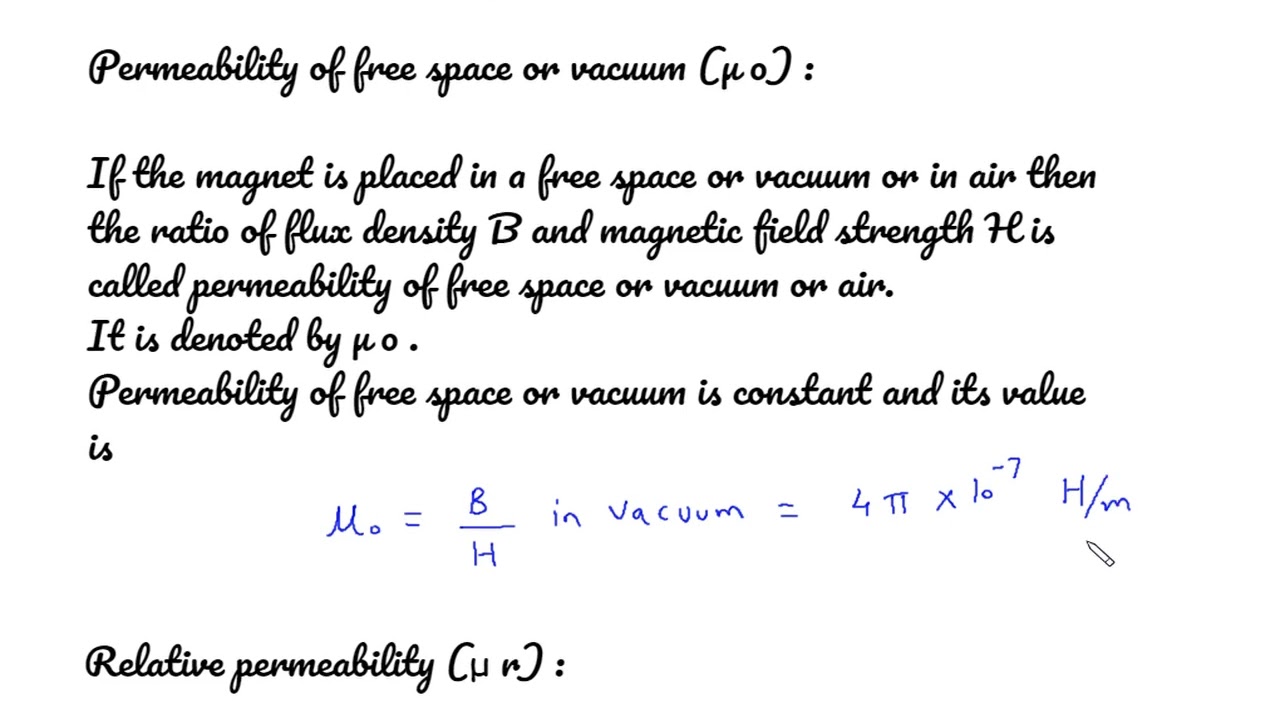 Permeability of free space or vacuum (μ o) :
If the magnet is placed in a free space or vacuum or in air then
the ratio of flux density B and magnetic field strength H is
called permeability of free space or vacuum or air.
It is denoted by μ o .
Permeability of free space or vacuum is constant and its value
is
μ₀ = B/H in vacuum = 4π × 10⁻⁷ H/m
Relative permeability (μ r) :